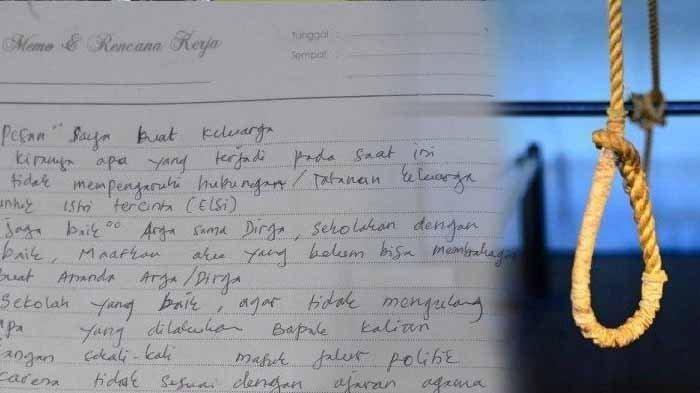 Memo & Rencana Kerja
Tanggal :
Sempat :
Pesan" saya buat keluarga
kiranya apa yang terjadi pada saat ini
tidak mempengaruhi hubungan / Tatanan keluarga
untuk istri tercinta (ELSi)
jaga baik" Arga sama Dirga, sekolakan dengan
baik, Maafkan aku yang belum bisa membahagia
buat Ananda Arga / Dirga
Sekolah yang baik, agar tidak mengulang
apa yang dilakukan Bapak kalian
jangan sekali-kali masuk jalur politik
karena tidak sesuai dengan ajaran agama